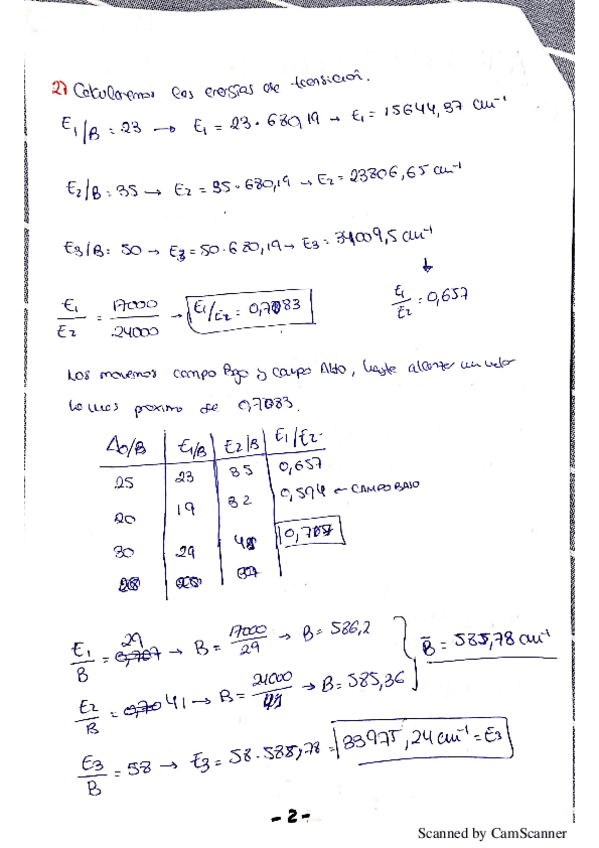 2) Calcularemos las energías de transición.
E1/B = 23 → E1 = 23 · 680,19 → E1 = 15644,37 cm⁻¹
E2/B = 35 → E2 = 35 · 680,19 → E2 = 23806,65 cm⁻¹
E3/B = 50 → E3 = 50 · 680,19 → E3 = 34009,5 cm⁻¹
↓
E1/E2 = 17000/24000 → E1/E2 = 0,7083
E1/E2 = 0,657
Nos movemos campo Bajo y campo Alto, hasta alcanzar un valor
lo mas proximo de 0,7083.
Δo/B | E1/B | E2/B | E1/E2
25 | 23 | 35 | 0,657
20 | 19 | 32 | 0,594 ← CAMPO BAJO
30 | 29 | 41 | 0,707
E1/B = 29 → B = 17000/29 → B = 586,2
B̄ = 585,78 cm⁻¹
E2/B = 41 → B = 24000/41 → B = 585,36
E3/B = 58 → E3 = 58 · 585,78 = 33975,24 cm⁻¹ = E3
- 2 -
Scanned by CamScanner